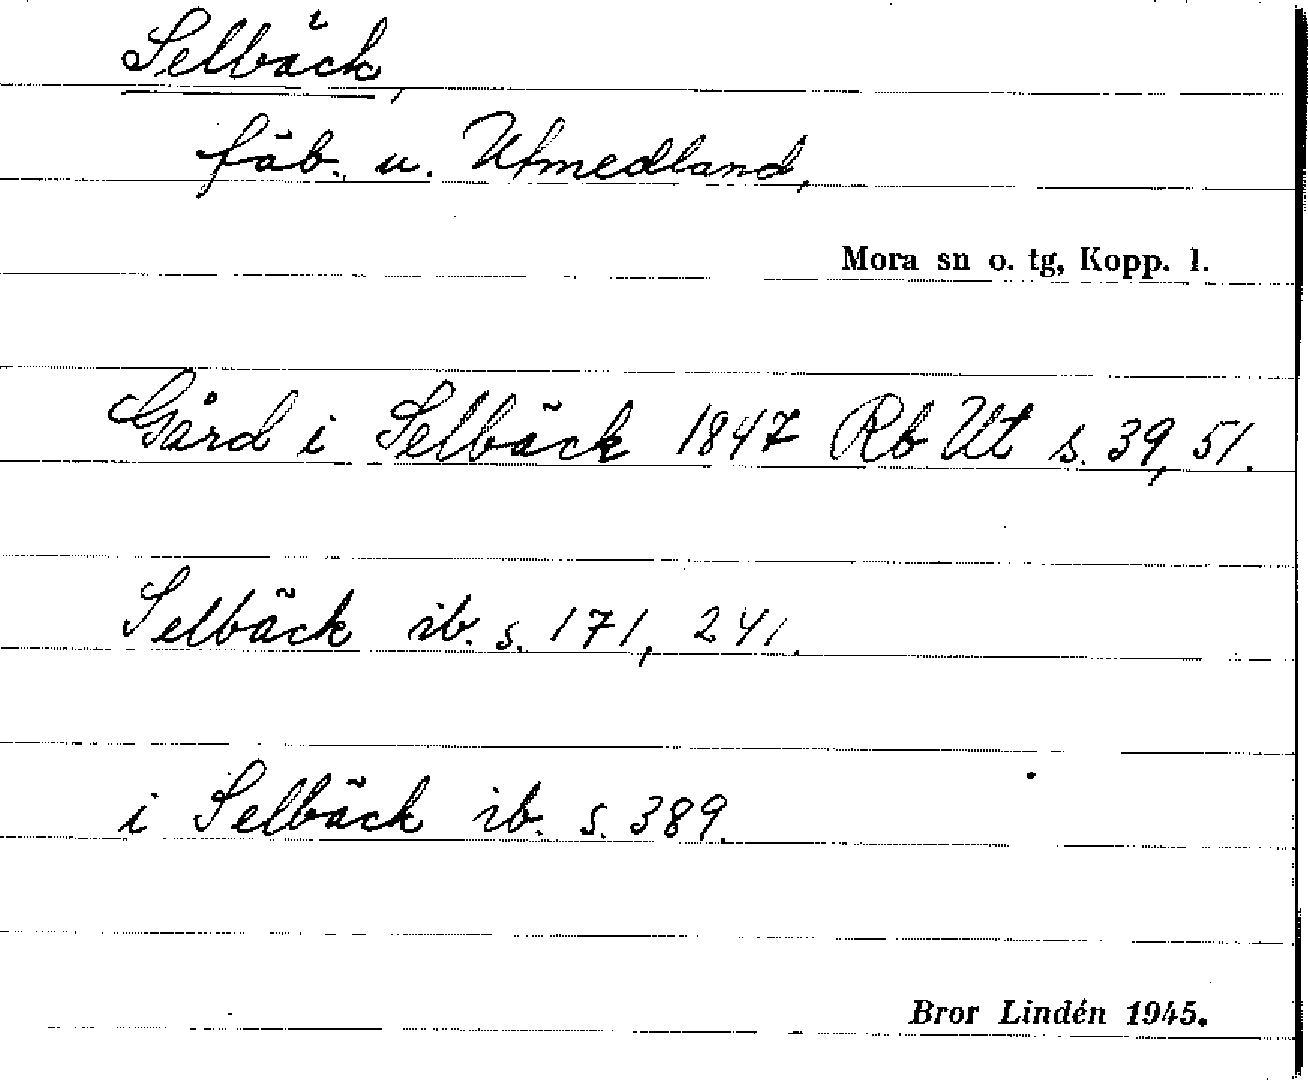 Selbäck,
fäb. u. Utmedland,
Mora sn o. tg, Kopp. l.
Gård i Selbäck 1847 Rb Ut s. 39, 51.
Selbäck ib. s. 171, 241.
i Selbäck ib. s. 389.
Bror Lindén 1945.